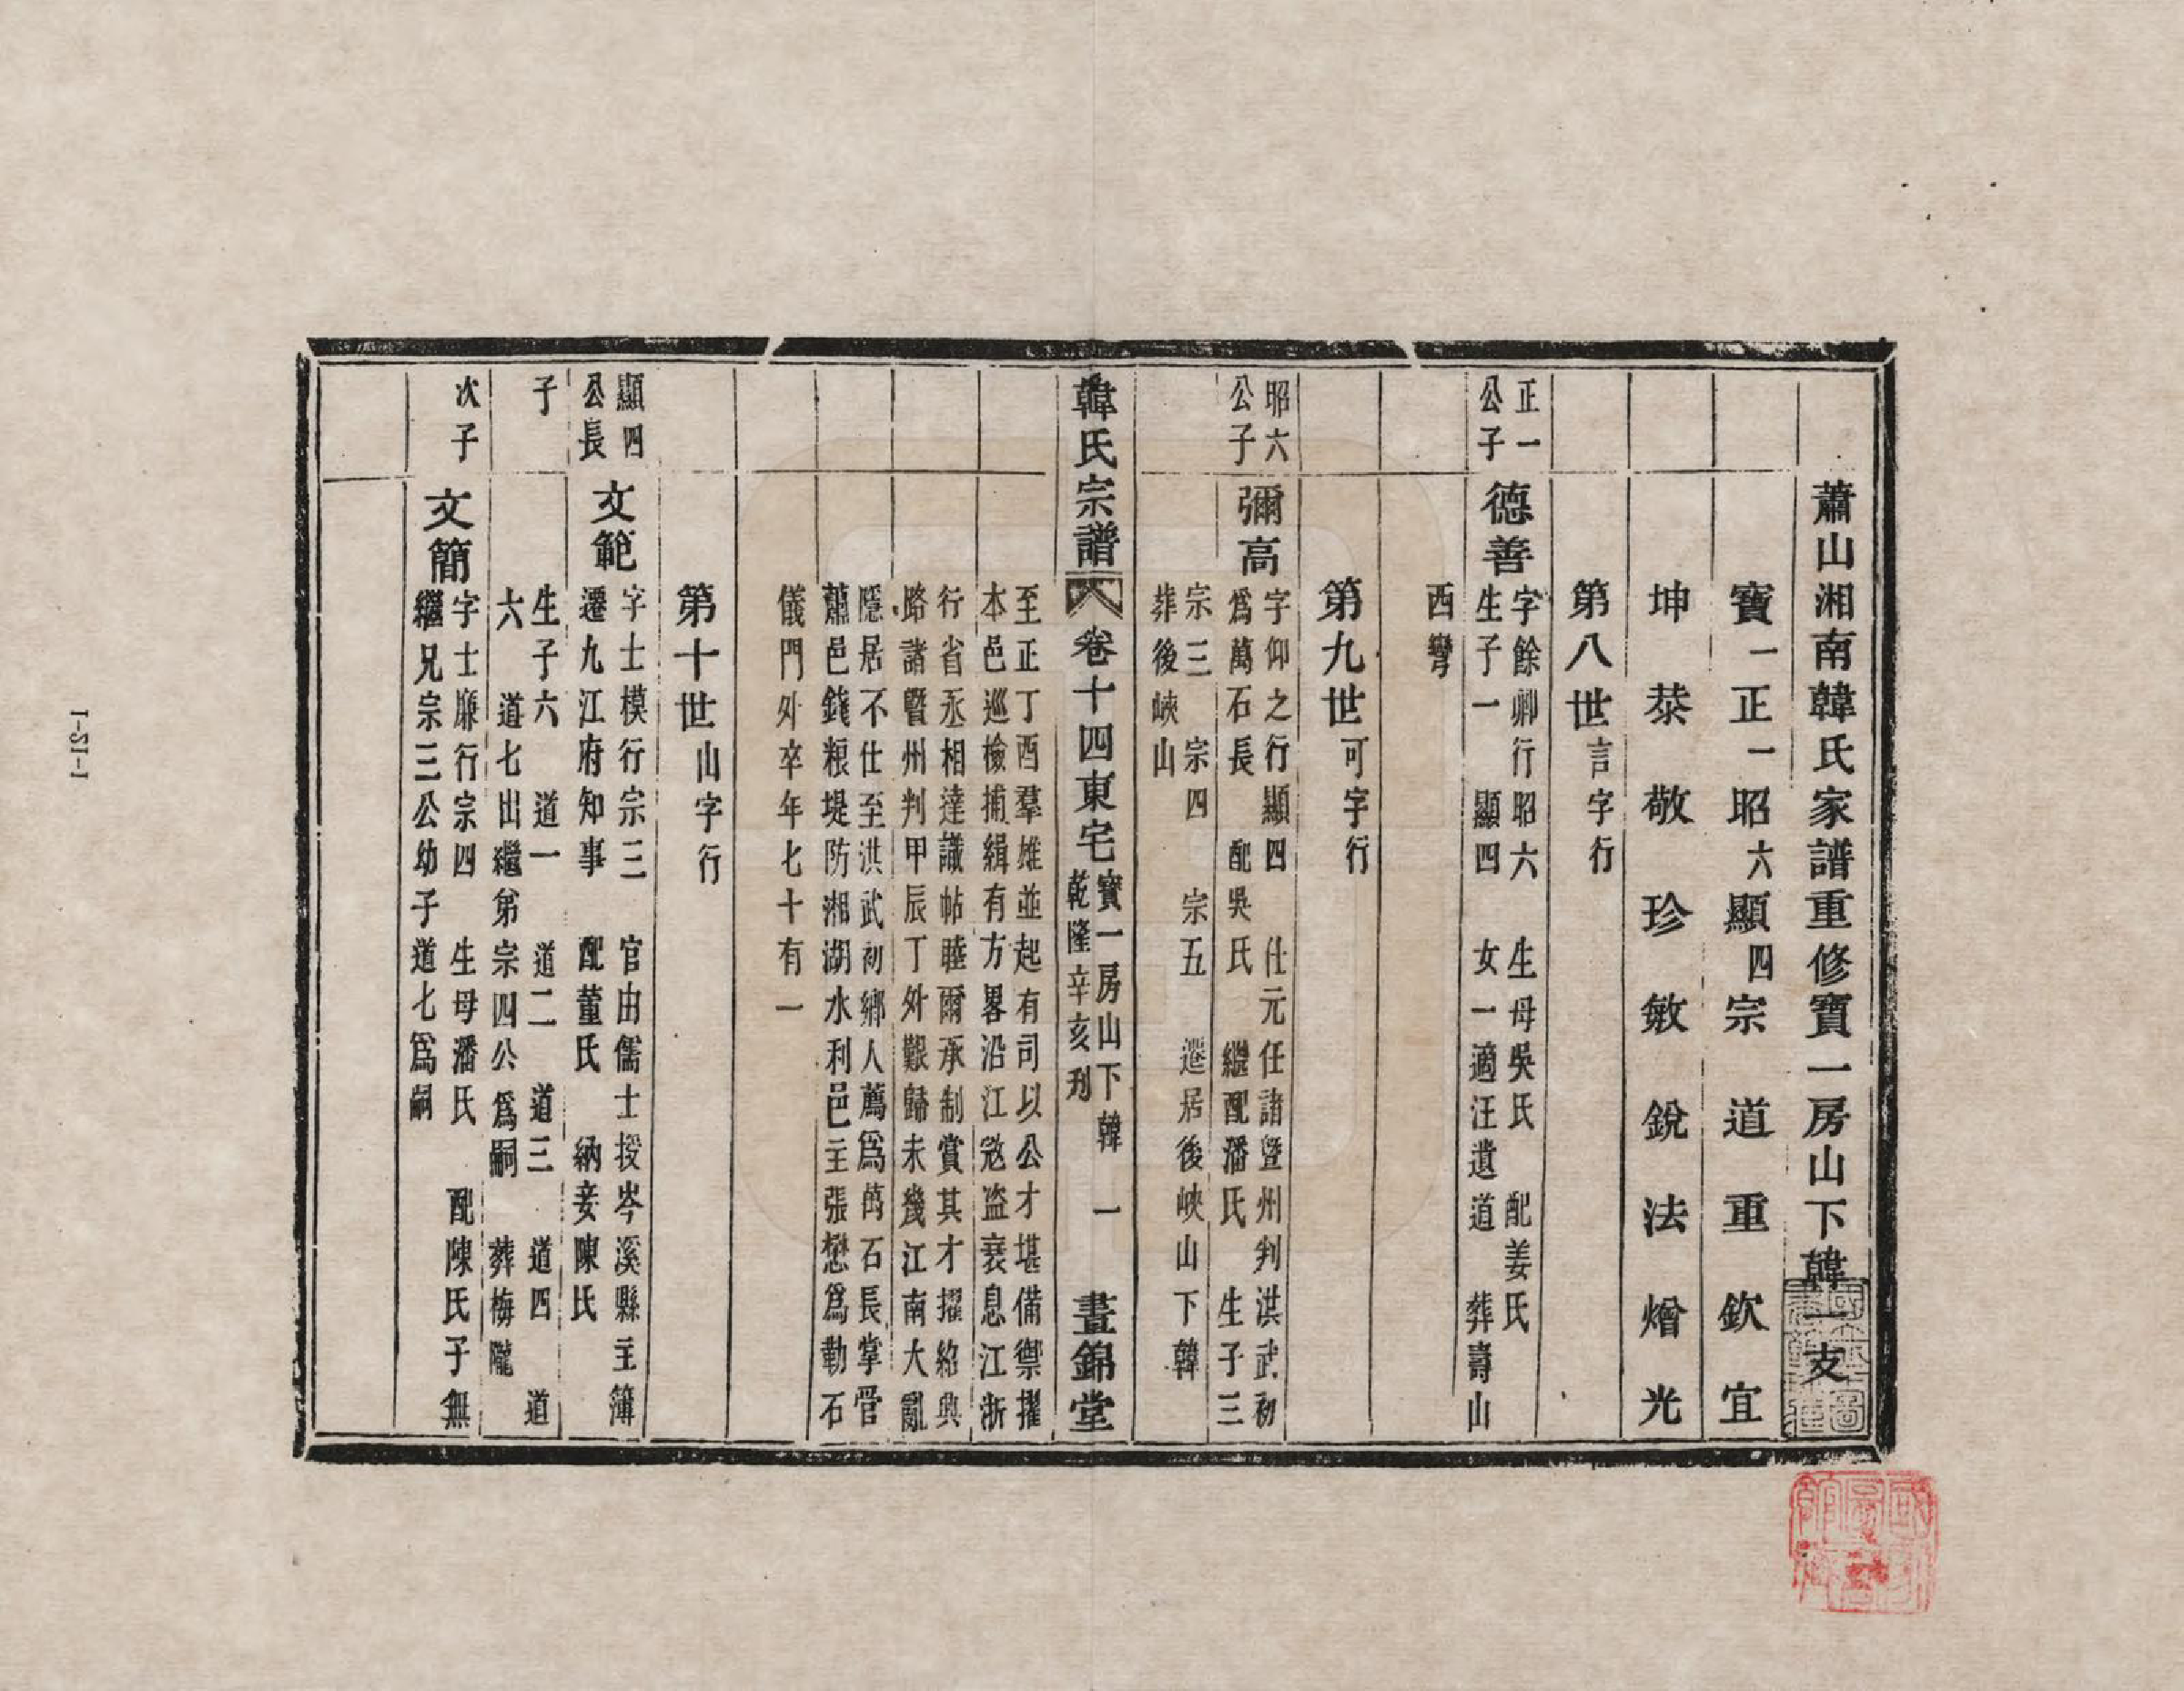 蕭山湘南韓氏家譜重修寶一房山下韓一支
寶一正一昭六顯四宗道重欽宜
坤恭敬珍敏銳法燴光
第八世言字行
正一
公子
德善
字餘卿行昭六 生母吳氏 配姜氏
生子一 顯四 女一適汪遺道 葬壽山
西彎
第九世可字行
昭六
公子
彌高
字仰之行顯四 仕元任諸暨州判洪武初
為萬石長 配吳氏 繼配潘氏 生子三
宗三 宗四 宗五 遷居後峽山下韓
葬後峽山
韓氏宗譜
卷十四東宅
寶一房山下韓
乾隆辛亥刋
一
晝錦堂
至正丁酉羣雄並起有司以公才堪備禦擢
本邑巡檢捕緝有方畧沿江寇盗衰息江浙
行省丞相達識帖睦爾承制賞其才擢紹興
路諸暨州判甲辰丁外艱歸未幾江南大亂
隱居不仕至洪武初鄉人薦為萬石長掌管
蕭邑錢粮堤防湘湖水利邑主張懋為勒石
儀門外卒年七十有一
第十世山字行
顯四
公長
子
文範
字士模行宗三 官由儒士授岑溪縣主簿
遷九江府知事 配董氏 納妾陳氏
生子六 道一 道二 道三 道四 道
六 道七出繼弟宗四公為嗣 葬梅隴
次子
文簡
字士廉行宗四 生母潘氏 配陳氏子無
繼兄宗三公幼子道七為嗣
1-S1-1